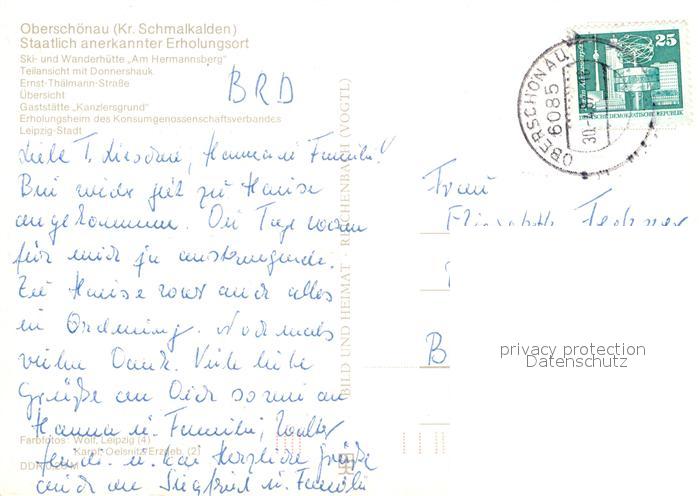 Oberschönau (Kr. Schmalkalden)
Staatlich anerkannter Erholungsort
Ski- und Wanderhütte „Am Hermannsberg"
Teilansicht mit Donnershauk
Ernst-Thälmann-Straße
Übersicht
Gaststätte „Kanzlersgrund"
Erholungsheim des Konsumgenossenschaftsverbandes
Leipzig-Stadt
BRD
Liebe T. Hanna u. Familie!
Bin wieder gut zu Hause
angekommen. Die Tage waren
für mich ja anstrengende.
Zu Hause war auch alles
in Ordnung. Nochmals
vielen Dank. Viele liebe
Grüße an Dich sowie an
Hanna u. Familie, Walter
u. Herzliche Grüße
auch an Siegfried u. Familie
Farbfotos: Wolf, Leipzig (4)
Karpf, Oelsnitz/Erzgeb. (2)
DDR
BILD UND HEIMAT · REICHENBACH (VOGTL)
25
DEUTSCHE DEMOKRATISCHE REPUBLIK
OBERSCHÖNAU
6085
30.
Frau
Elisabeth
B
privacy protection
Datenschutz